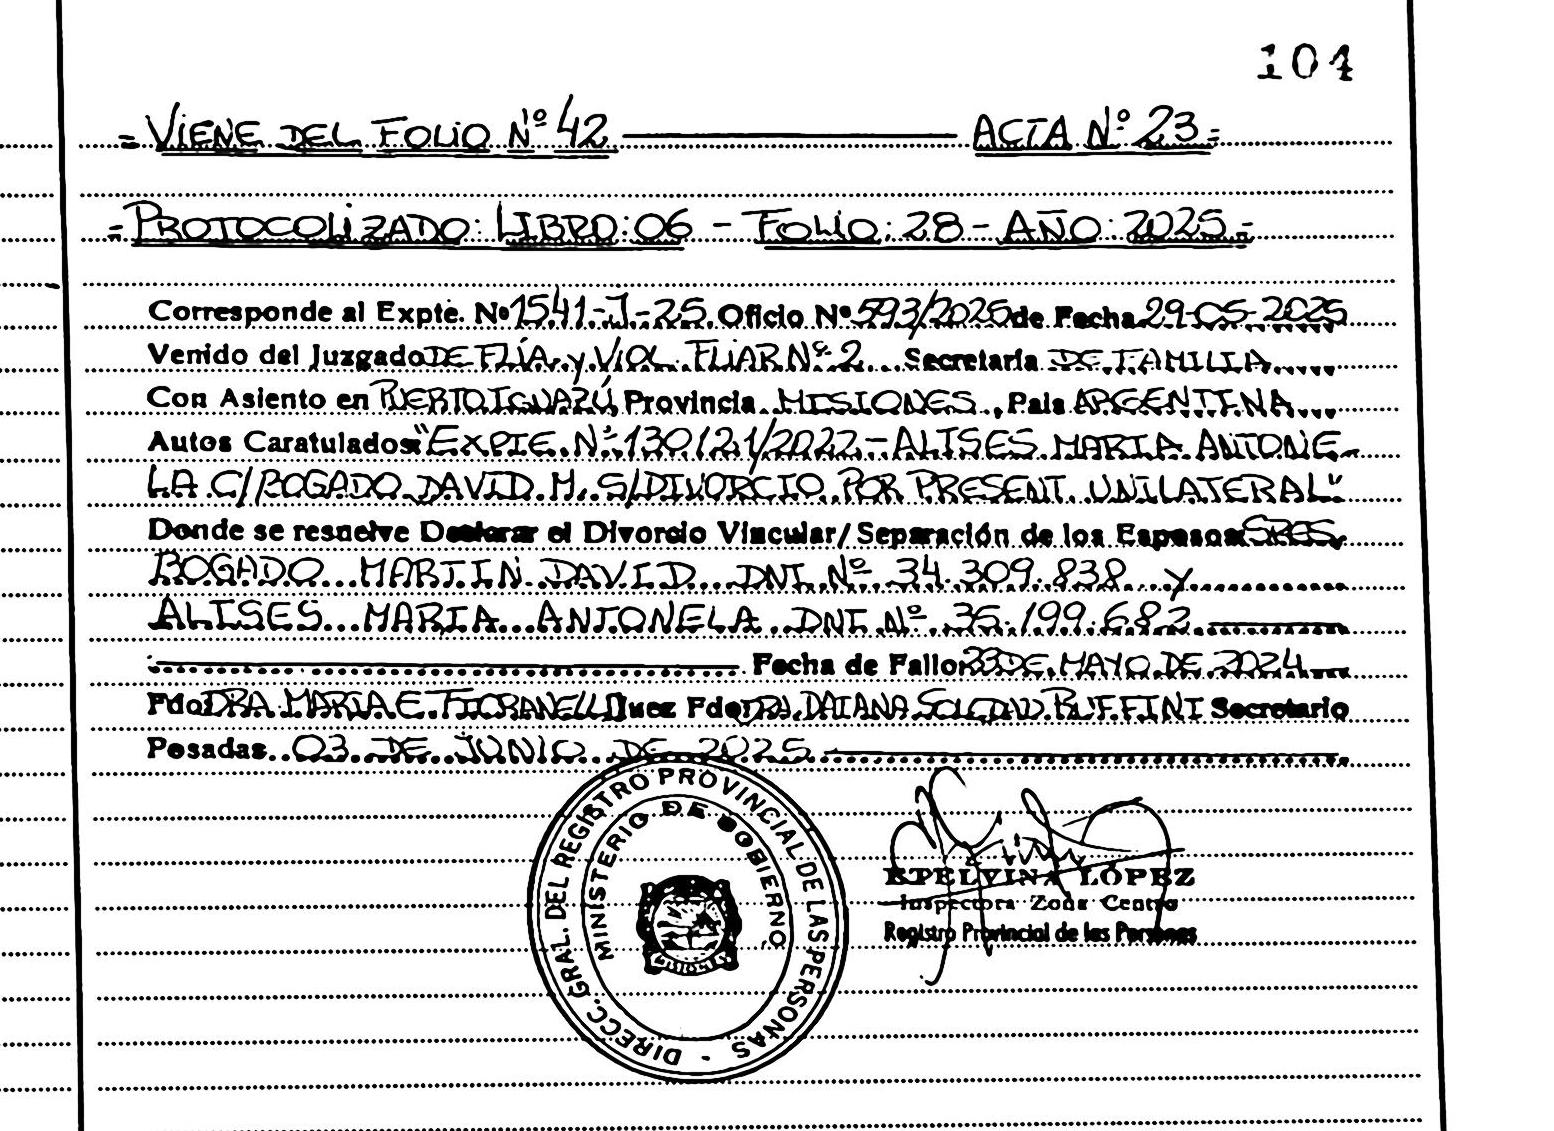 104
= VIENE DEL FOLIO Nº 42 ——— ACTA Nº 23 =
= PROTOCOLIZADO: LIBRO: 06 - FOLIO: 28 - AÑO: 2025 =
Corresponde al Expte. Nº 1541-J-25 Oficio Nº 593/2025 de Fecha 29-05-2025
Venido del Juzgado DE FLÍA. y VIOL. FLIAR Nº 2 Secretaría DE FAMILIA
Con Asiento en PUERTO IGUAZÚ, Provincia MISIONES, País ARGENTINA
Autos Caratulados "EXPTE. Nº 130121/2022 - ALISES MARIA ANTONE-
LA C/ BOGADO DAVID M. S/ DIVORCIO POR PRESENT. UNILATERAL"
Donde se resuelve Declarar el Divorcio Vincular/Separación de los Esposos SRES.
BOGADO MARTIN DAVID DNI Nº 34.309.838 y
ALISES MARIA ANTONELA DNI Nº 35.199.682
Fecha de Fallo: 23 DE MAYO DE 2024
Fdo: DRA. MARIA E. FIORANELLI Juez Fdo: DRA. DAIANA SOLEDAD BUFFINI Secretario
Posadas 03 DE JUNIO DE 2025
DIRECC. GRAL. DEL REGISTRO PROVINCIAL DE LAS PERSONAS -
MINISTERIO DE GOBIERNO
MISIONES
ETELVINA LÓPEZ
Inspectora Zona Centro
Registro Provincial de las Personas